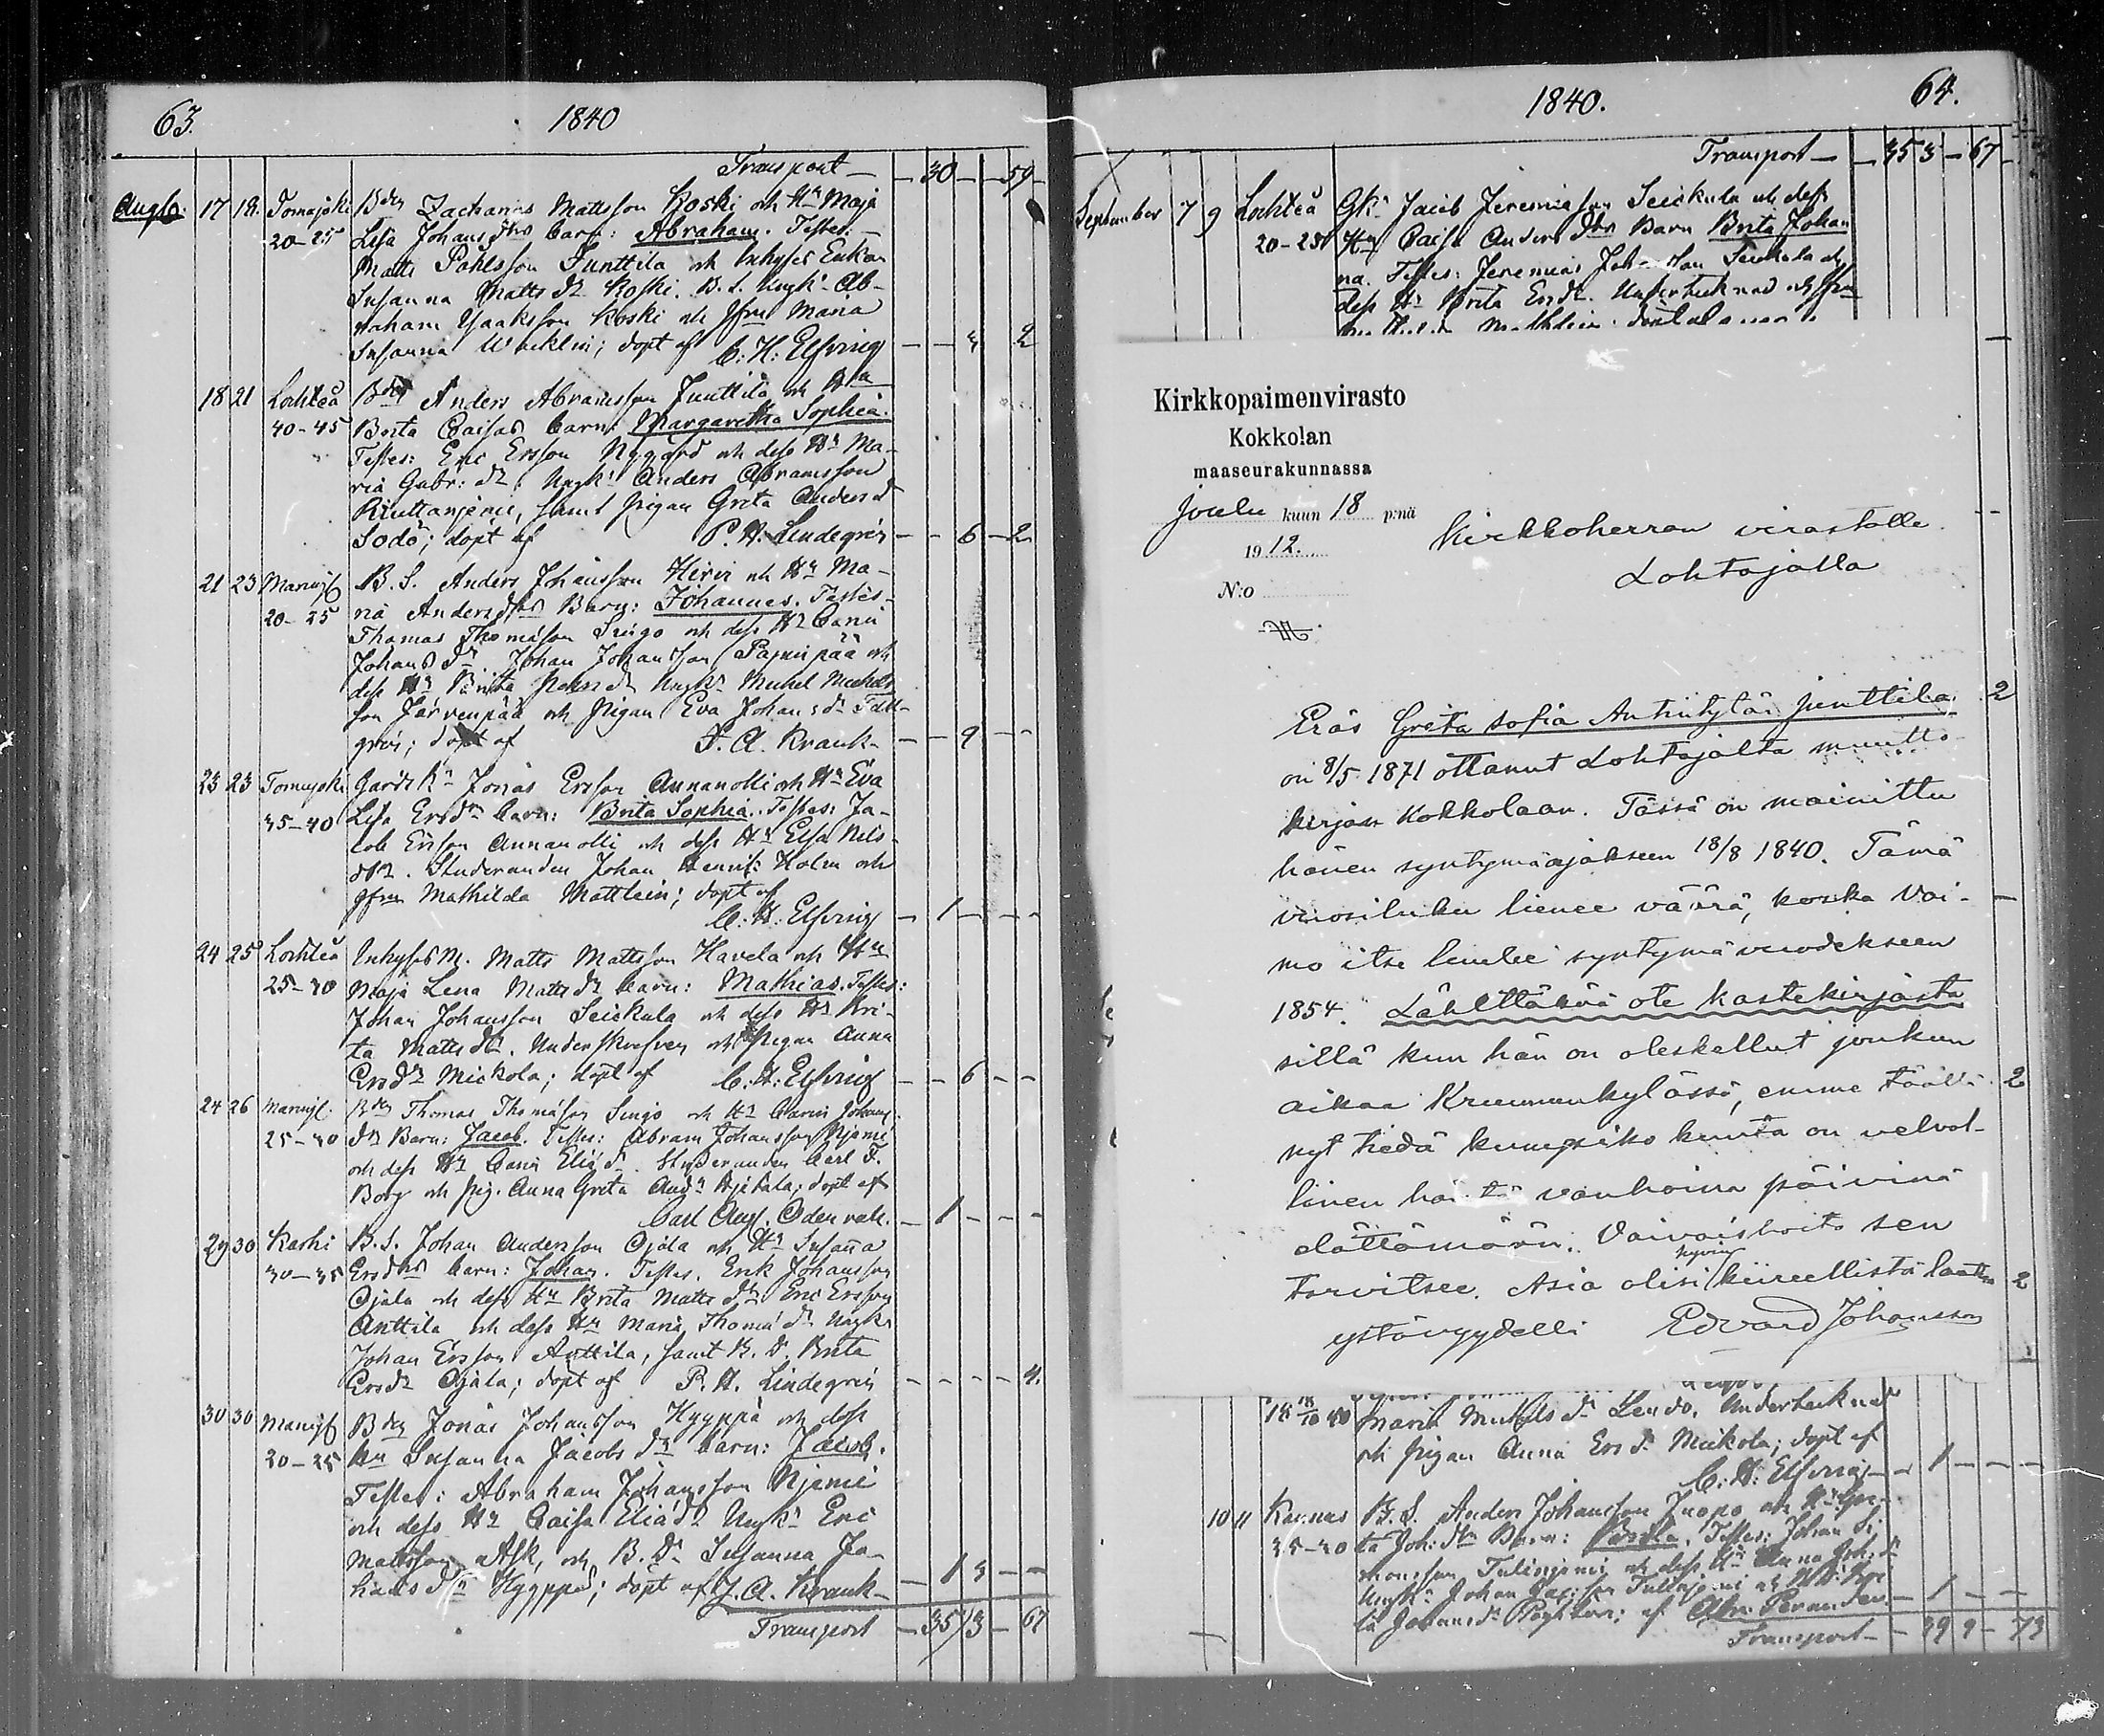 63.
1840
Transport — 30 — — 59 —
Augti: 17 19. Tomujoki Bdn Zacharias Mattsson Koski och Hu Maja
20-25 Lisa Johansdtrs barn: Abraham. Testes:
Matts Påhlsson Junttila och Inhyses Enkan
Susanna Matts dr Koski. B. S. Ungk. Ab-
raham Isaksson Koski och Jfru Maria
Susanna Wacklin; döpt af C: H: Elfving — — 3 2
18 21 Lochteå Bdn Anders Abramsson Junttila och Hu
40-45 Brita Caisas barn: Margaretha Sophia.
Testes: Eric Ersson Nygård och dess Hu Ma-
ria Gabr: dr. Ungk. Anders Abramsson
samt pigan Greta Anders d
Sodö; döpt af P. H. Lindegrén — — 6 — 2
21 23 B. S. Anders Johansson Hirvi och Hu Ma-
20-25 ria Andersdtrs Barn: Johannes. Testes-
Thomas Thomasson Lingo och dess Hu Carin
Johans dr. Johan Johansson Pajunpää och
dess Hu Brita dr Ungk. Michel Michels
son Järvenpää och Pigan Eva Johans dr
grén; döpt af J. A. Krank — — 9 — —
23 23 Tomujoki Gårdsk. Jonas Ersson Annanolli och Hu Eva
35-40 Lisa Ersdrs barn: Brita Sophia. Testes: Ja-
cob Ersson Annanolli och dess Hu Elsa Nils
dtr. Studeranden Johan Henrik Holm och
Jfru Mathilda Mattlein; döpt af
C. H. Elfving — 1 — — —
24 25 Lochteå Inhyses M. Matts Mattsson Havela och Hu
25-30 Maja Lena Matts drs barn: Mathias. Testes:
Johan Johansson Seickula och dess Hu Bri-
ta Matts dr. Underskrefven och Pigan Anna
Ersdr Mickola; döpt af C. H. Elfving — — 6 — —
24 26 Bdn Thomas Thomasson Lingo och Hu Carin Johans
25-30 drs Barn: Jacob. Testes: Abram Johansson Njemi
och dess Hu Carin Elia dr. Studeranden Carl F.
Borg och pig. Anna Greta Andr ; döpt af
Carl Aug. Odenvall. — 1 — — —
29 30 Karhi B. S. Johan Andersson Ojala och Hu Susanna
30-35 Ersdtrs barn: Johan. Testes. Erik Johansson
Ojala och dess Hu Brita Matts dr Eric Ersson
Anttila och dess Hu Maria Thoma dr Ungk.
Johan Ersson Anttila, samt B. D. Brita
Ersdr Ojala; döpt af P. H. Lindegrén — — — — 4.
30 30 Bdn Jonas Johansson Hyyppä och dess
20-25 hu Susanna Jacobs drs barn: Jacob.
Testes: Abraham Johansson Njemi
och dess Hu Caisa Elia dr Ungk. Eric
Mattsson Ask, och B. Dr Susanna Jo-
hans dr Hyyppä; döpt af J. A. Krank — 1 3 — —
Transport — 35 3 — 67
1840.
64.
Transport — — 35 3 — 67 —
September 7 9 Lochteå Gk. Jacob Jeremiasson Seickula och dess
20-25 Hu Caisa Anders dtrs Barn Brita Johan
na. Testes: Jeremias Johansson Seickula och
dess Hu Brita Ersdr. Undertecknad och Jfru
Kirkkopaimenvirasto
Kokkolan
maaseurakunnassa
Joulu kuun 18 p:nä
1912.
N:o
Kirkkoherran virastolle
Lohtajalla
Eräs Greta Sofia Antintytär Junttila
on 8/5 1871 ottanut Lohtajalta muutto
kirjan Kokkolaan. Tässä on mainittu
hänen syntymäajakseen 18/8 1840. Tämä
vuosiluku lienee väärä, koska vai-
mo itse luulee syntymävuodekseen
1854. Lähettäkää ote kastekirjasta
sillä kun hän on oleskellut jonkun
aikaa Kruununkylässä, emme täällä
nyt tiedä kumpiko kunta on velvol-
linen häntä vanhoina päivinä
elättämään. Vaivaishoito sen
tarvitsee. Asia olisi hyvin kiireellistä laatua
ystävyydellä Edvard Johansson
18 18/10 40 Maria Michels dr Lendo. Undertecknad
och pigan Anna Ers dr Mickola; döpt af
C. H. Elfving — 1 — — —
10 11 B. S. Anders Johansson Juopo och Hu Gre-
25-30 ta Joh: dtrs Barn: Testes: Johan Si
monsson Tulinjemi och dess Hu Anna Joh: dr
Ungk. Johan
ta Johans dr af Abr. Peranden — 1 — —
Transport — 39 9 — 73